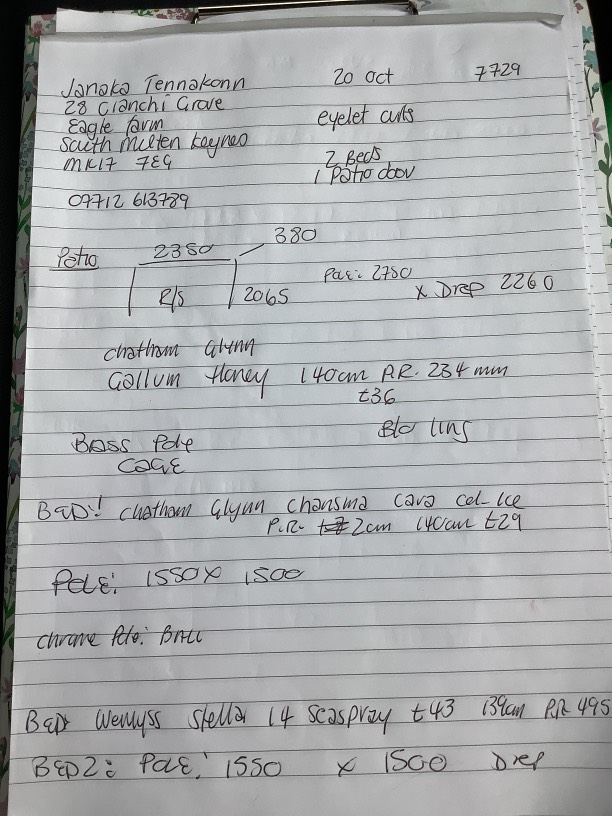 Janaka Tennakonn 20 Oct 7729
28 Cianchi Grove
Eagle farm eyelet curts
South Milten Keynes
MK17 7EG 2 Beds
1 Patio door
07712 613789
Patio 2350 380
R/S 2065 Pole: 2750 x Drop 2260
Chatham Glynn
Gallum Honey 140cm P.R. 234mm
£36
Blo ling
Brass Pole
Cage
BED1: Chatham Glynn Charisma Cara Col Ice
P.R. 2cm 140cm £29
Pole: 1550 x 1500
Chrome Pole: Ball
Bed Wemyss Stella 14 Seaspray £43 139cm P.R 495
BED2: Pole: 1550 x 1500 Drop